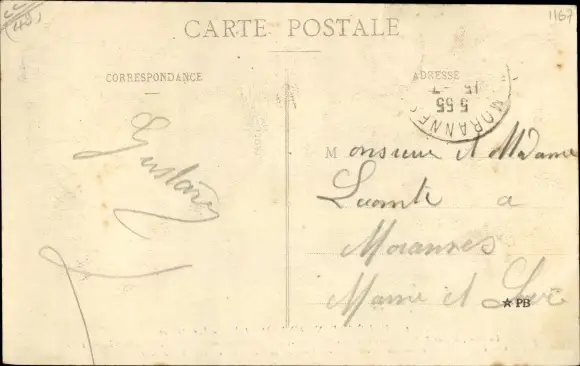 (49)
1167
CARTE POSTALE
CORRESPONDANCE
ADRESSE
5 55
15 -7
MORANNES
Gustave
Monsieur et Madame
Lecomte a
Morannes
Maine et Loire
PB